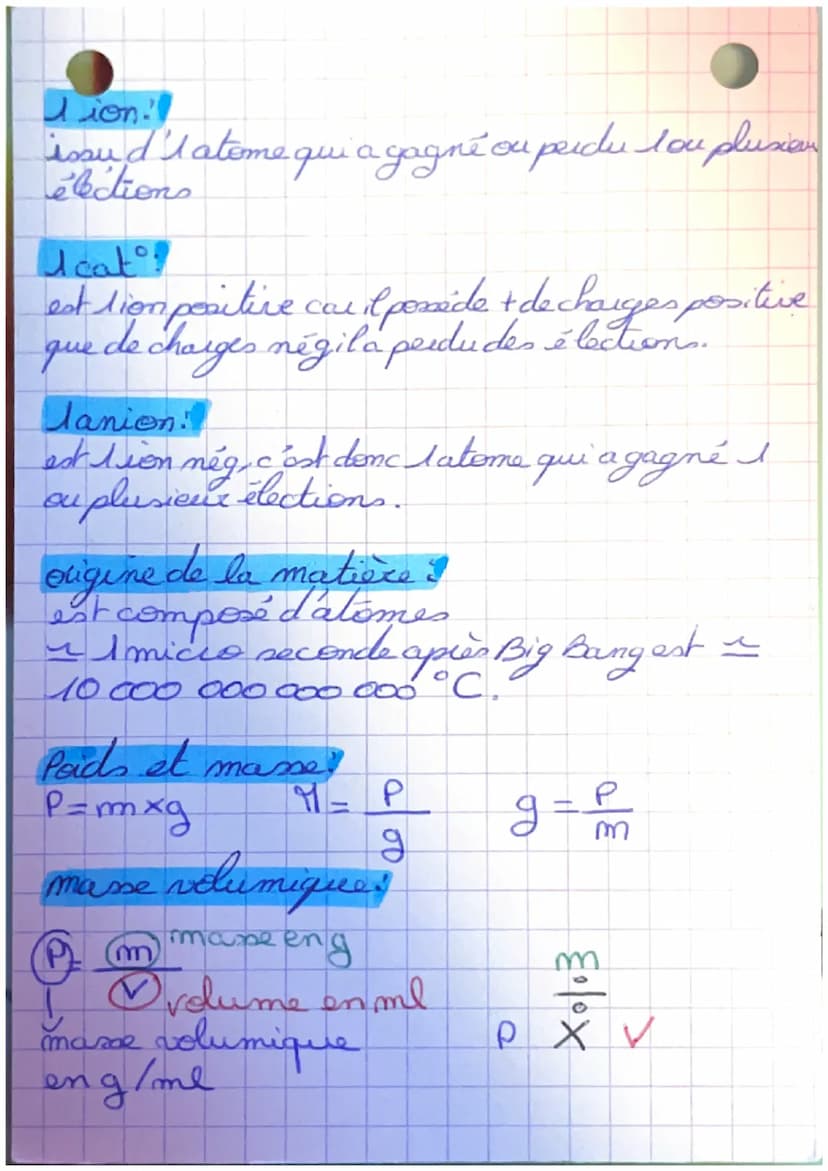 1 ion:
issu d'1 atome qui a gagné ou perdu 1 ou plusieurs
élections
1 cat°:
est 1 ion positive car il possède + de charges positive
que de charges nég il a perdu des élections.
1 anion:
est 1 ion nég, c'est donc 1 atome qui a gagné 1
ou plusieurs élections.
origine de la matière:
est composé d'atomes
≃ 1 micro seconde après Big Bang est ≃
10 000 000 000 000 °C.
Poids et masse:
P = m x g M = P/g g = P/m
masse volumique:
ρ = m/V masse en g
volume en ml
masse volumique
en g/ml
m
÷
ρ X V